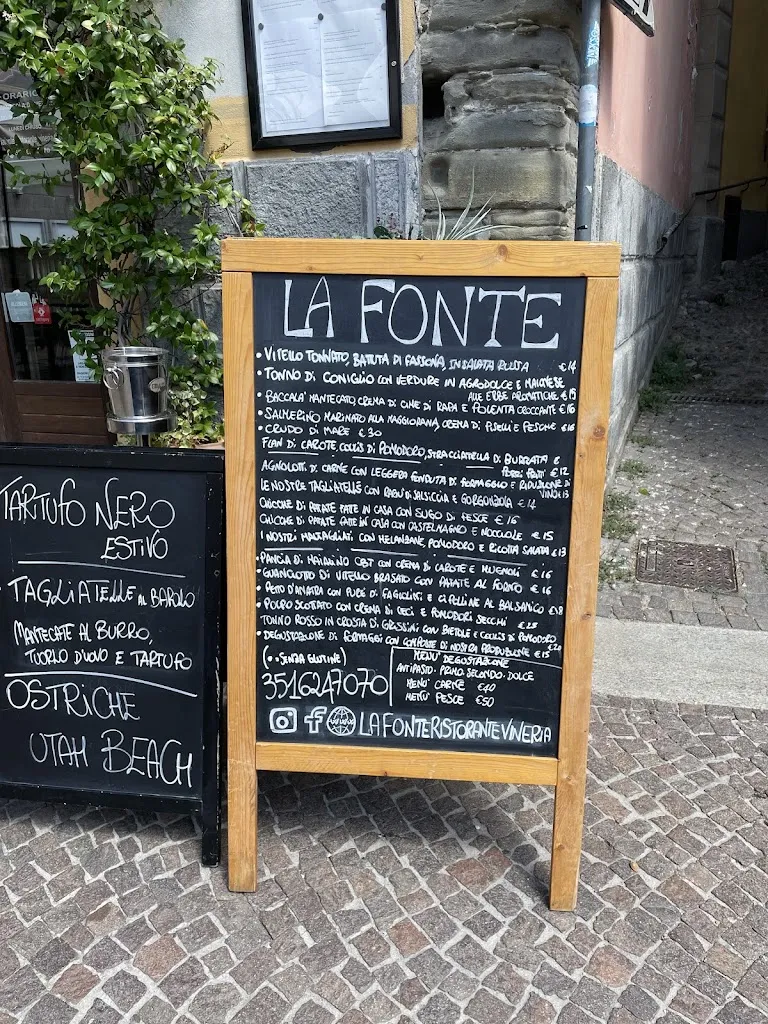 ORARIO
TARTUFO NERO
ESTIVO
TAGLIATELLE AL BAROLO
MANTECATE AL BURRO,
TUORLO D'UOVO E TARTUFO
OSTRICHE
UTAH BEACH
LA FONTE
• VITELLO TONNATO, BATTUTA DI FASSONA, INSALATA RUSSA €14
• TONNO DI CONIGLIO CON VERDURE IN AGRODOLCE E MAIONESE
ALLE ERBE AROMATICHE €15
• BACCALA' MANTECATO CREMA DI CIME DI RAPA E POLENTA CROCCANTE €16
• SALMERINO MARINATO ALLA MAGGIORANA, CREMA DI PISELLI E PESCHE €16
• CRUDO DI MARE €30
FLAN DI CAROTE, COULIS DI POMODORO, STRACCIATELLA DI BURRATA E
€12
AGNOLOTTI DI CARNE CON LEGGERA FONDUTA DI FORMAGGIO E RIDUZIONE DI
VINO €13
LE NOSTRE TAGLIATELLE CON RAGU' DI SALSICCIA E GORGONZOLA €14
CHICCHE DI PATATE FATTE IN CASA CON SUGO DI PESCE €16
CHICCHE DI PATATE FATTE IN CASA CON CASTELMAGNO E NOCCIOLE €15
I NOSTRI MALTAGLIATI CON MELANZANE, POMODORO E RICOTTA SALATA €13
• PANCIA DI MAIALINO CBT CON CREMA DI CAROTE E MUGNOLI €16
• GUANCIOTTO DI VITELLO BRASATO CON PATATE AL FORNO €16
• PETTO D'ANATRA CON PURE' DI FAGIOLINI E CIPOLLINE AL BALSAMICO €18
• POLPO SCOTTATO CON CREMA DI CECI E POMODORI SECCHI €18
TONNO ROSSO IN CROSTA DI GRISSINI CON BIETOLE E COULIS DI POMODORO
€20
• DEGUSTAZIONE DI FORMAGGI CON COMPOSTE DI NOSTRA PRODUZIONE €15
(• = SENZA GLUTINE)
3516247070
MENU' DEGUSTAZIONE
ANTIPASTO. PRIMO. SECONDO. DOLCE
MENU' CARNE €40
MENU' PESCE €50
WWW LAFONTERISTORANTEVINERIA